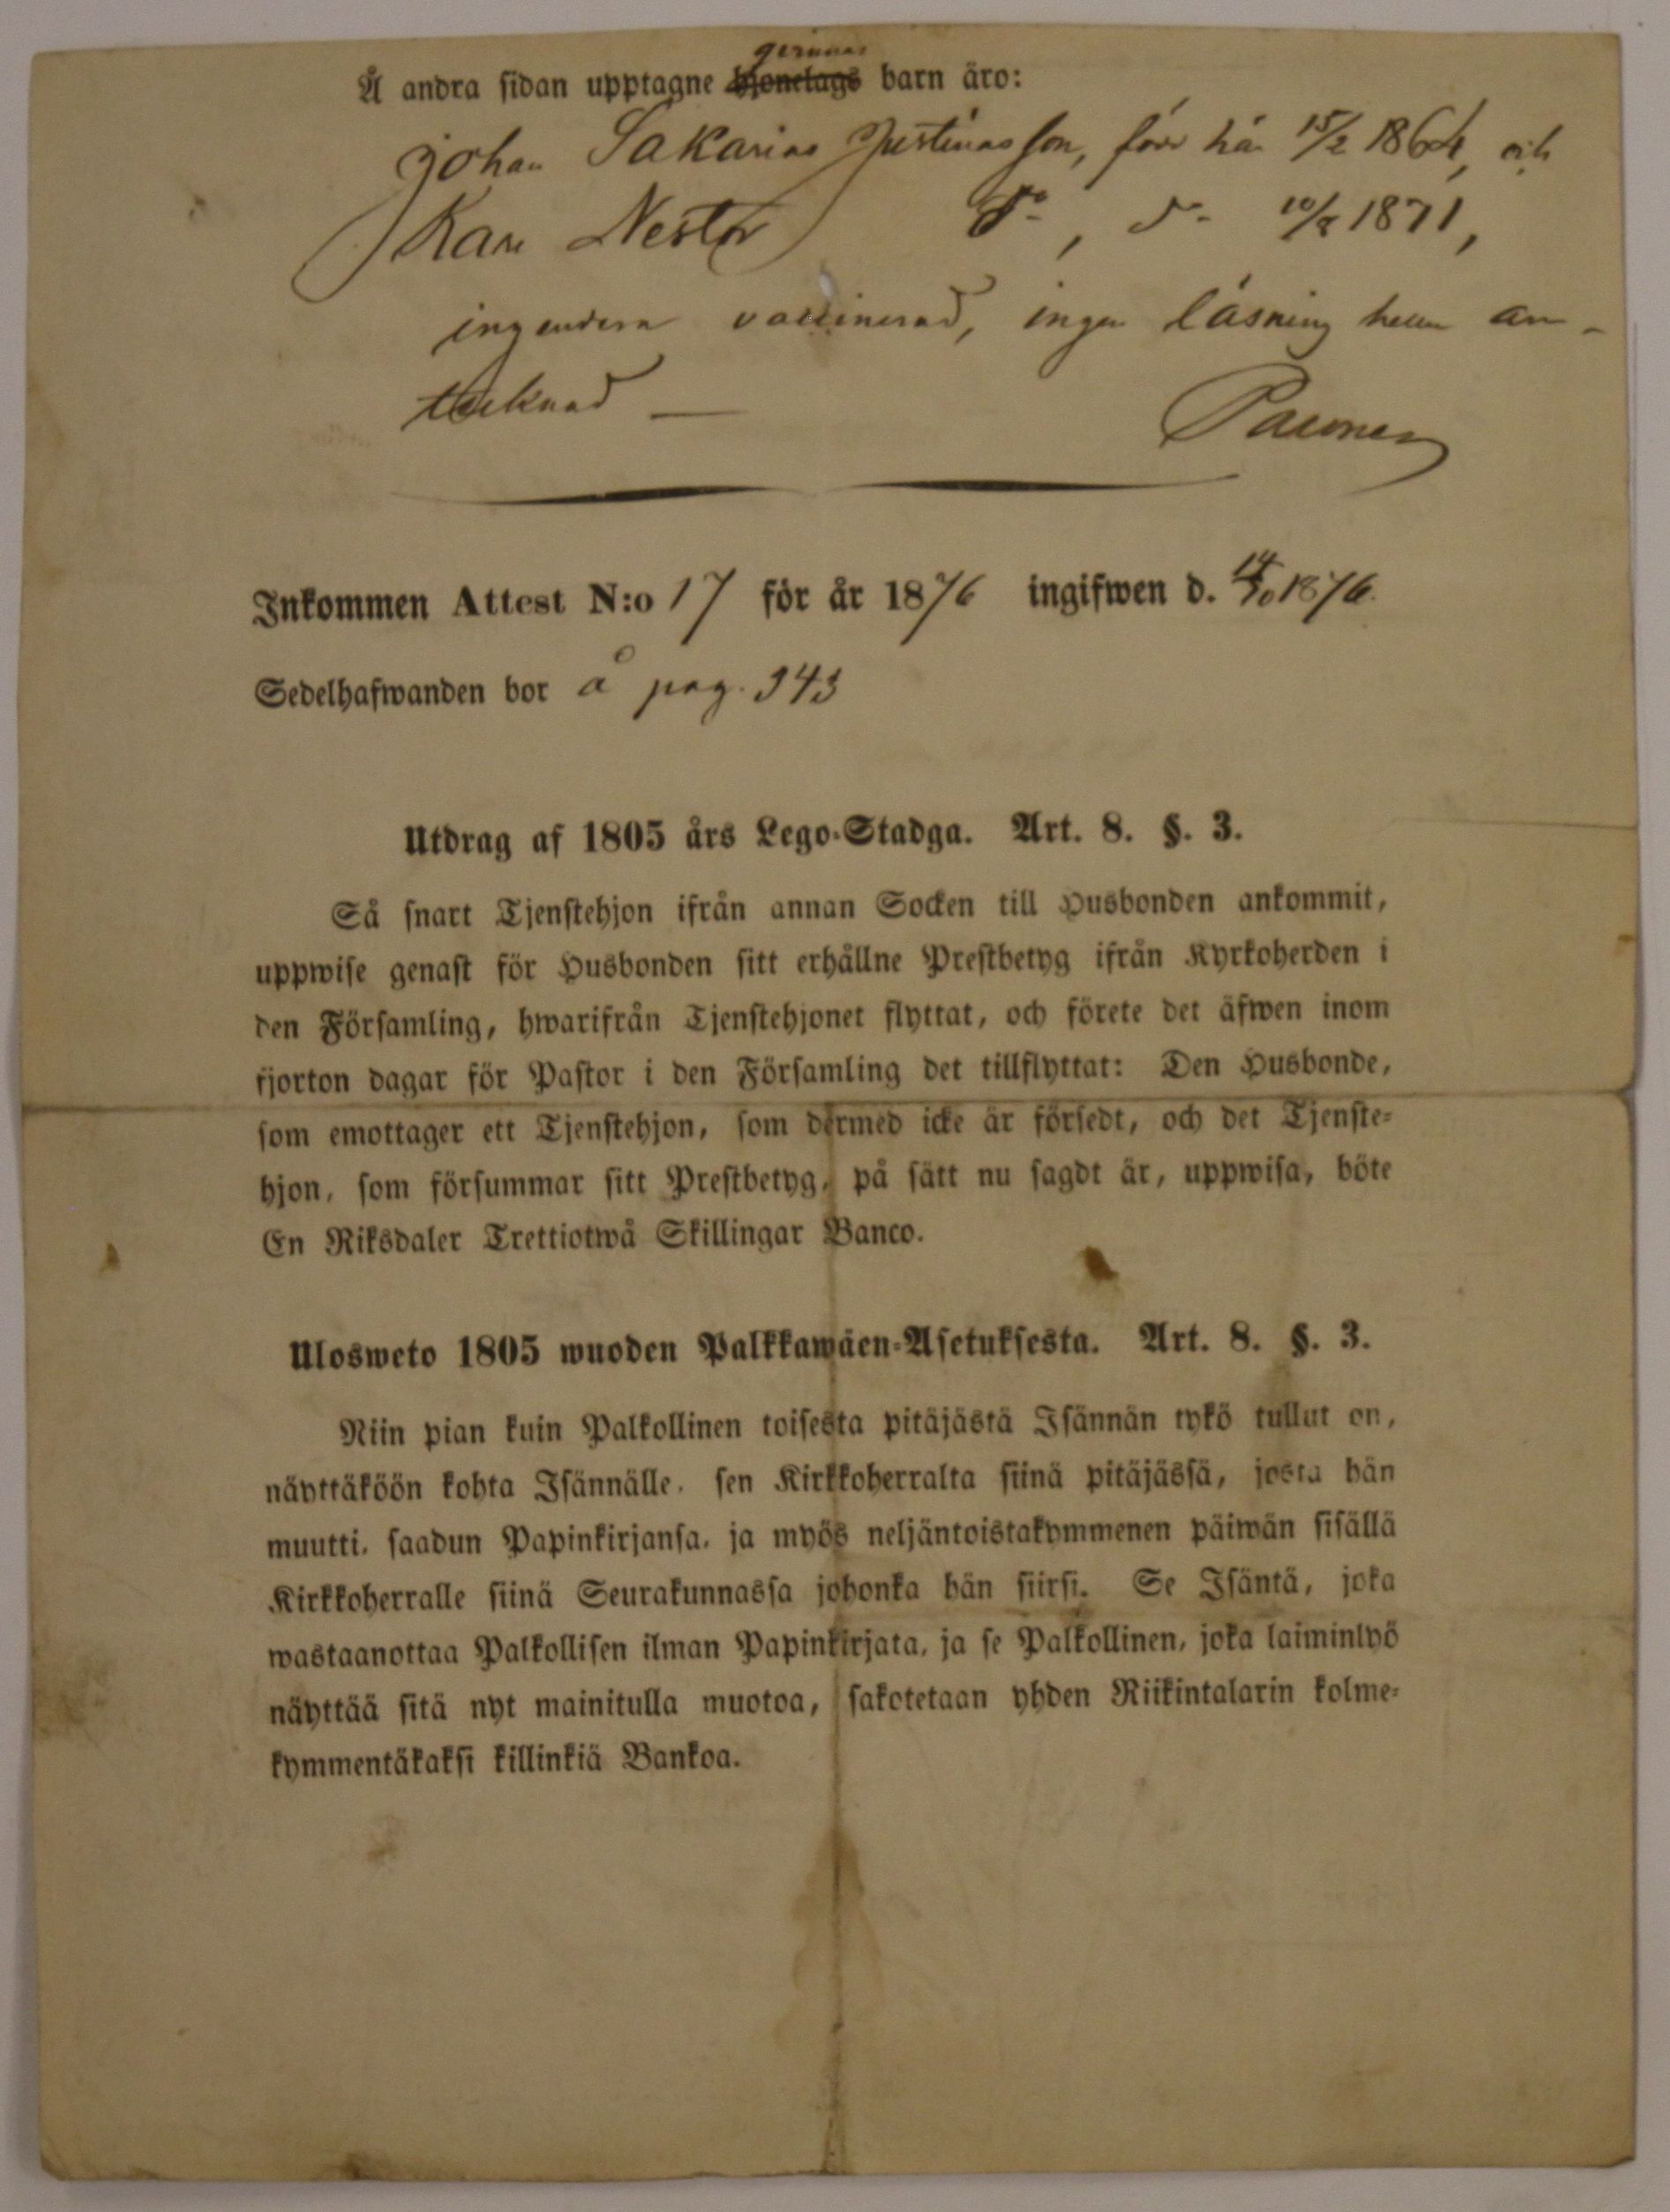 Å andra sidan upptagne hjonelags barn äro:
Johan Sakarias Justinas son, född här 15/2 1864, och
Karl Nestor d:o, d:o 10/8 1871,
ingendera vaccinerad, ingen läsning heller an-
tecknad —
Inkommen Attest N:o 17 för år 1876 ingifwen d. 14/10 1876.
Sedelhafwanden bor å pag. 343
Utdrag af 1805 års Lego-Stadga. Art. 8. §. 3.
Så snart Tjenstehjon ifrån annan Socken till Husbonden ankommit,
uppwise genast för Husbonden sitt erhållne Prestbetyg ifrån Kyrkoherden i
den Församling, hwarifrån Tjenstehjonet flyttat, och förete det äfwen inom
fjorton dagar för Pastor i den Församling det tillflyttat: Den Husbonde,
som emottager ett Tjenstehjon, som dermed icke är försedt, och det Tjenste-
hjon, som försummar sitt Prestbetyg, på sätt nu sagdt är, uppwisa, böte
En Riksdaler Trettiotwå Skillingar Banco.
Ulosweto 1805 wuoden Palkkawäen-Asetuksesta. Art. 8. §. 3.
Niin pian kuin Palkollinen toisesta pitäjästä Isännän tykö tullut on,
näyttäköön kohta Isännälle, sen Kirkkoherralta siinä pitäjässä, josta hän
muutti, saadun Papinkirjansa, ja myös neljäntoistakymmenen päiwän sisällä
Kirkkoherralle siinä Seurakunnassa johonka hän siirsi. Se Isäntä, joka
wastaanottaa Palkollisen ilman Papinkirjata, ja se Palkollinen, joka laiminlyö
näyttää sitä nyt mainitulla muotoa, sakotetaan yhden Riikintalarin kolme-
kymmentäkaksi killinkiä Bankoa.